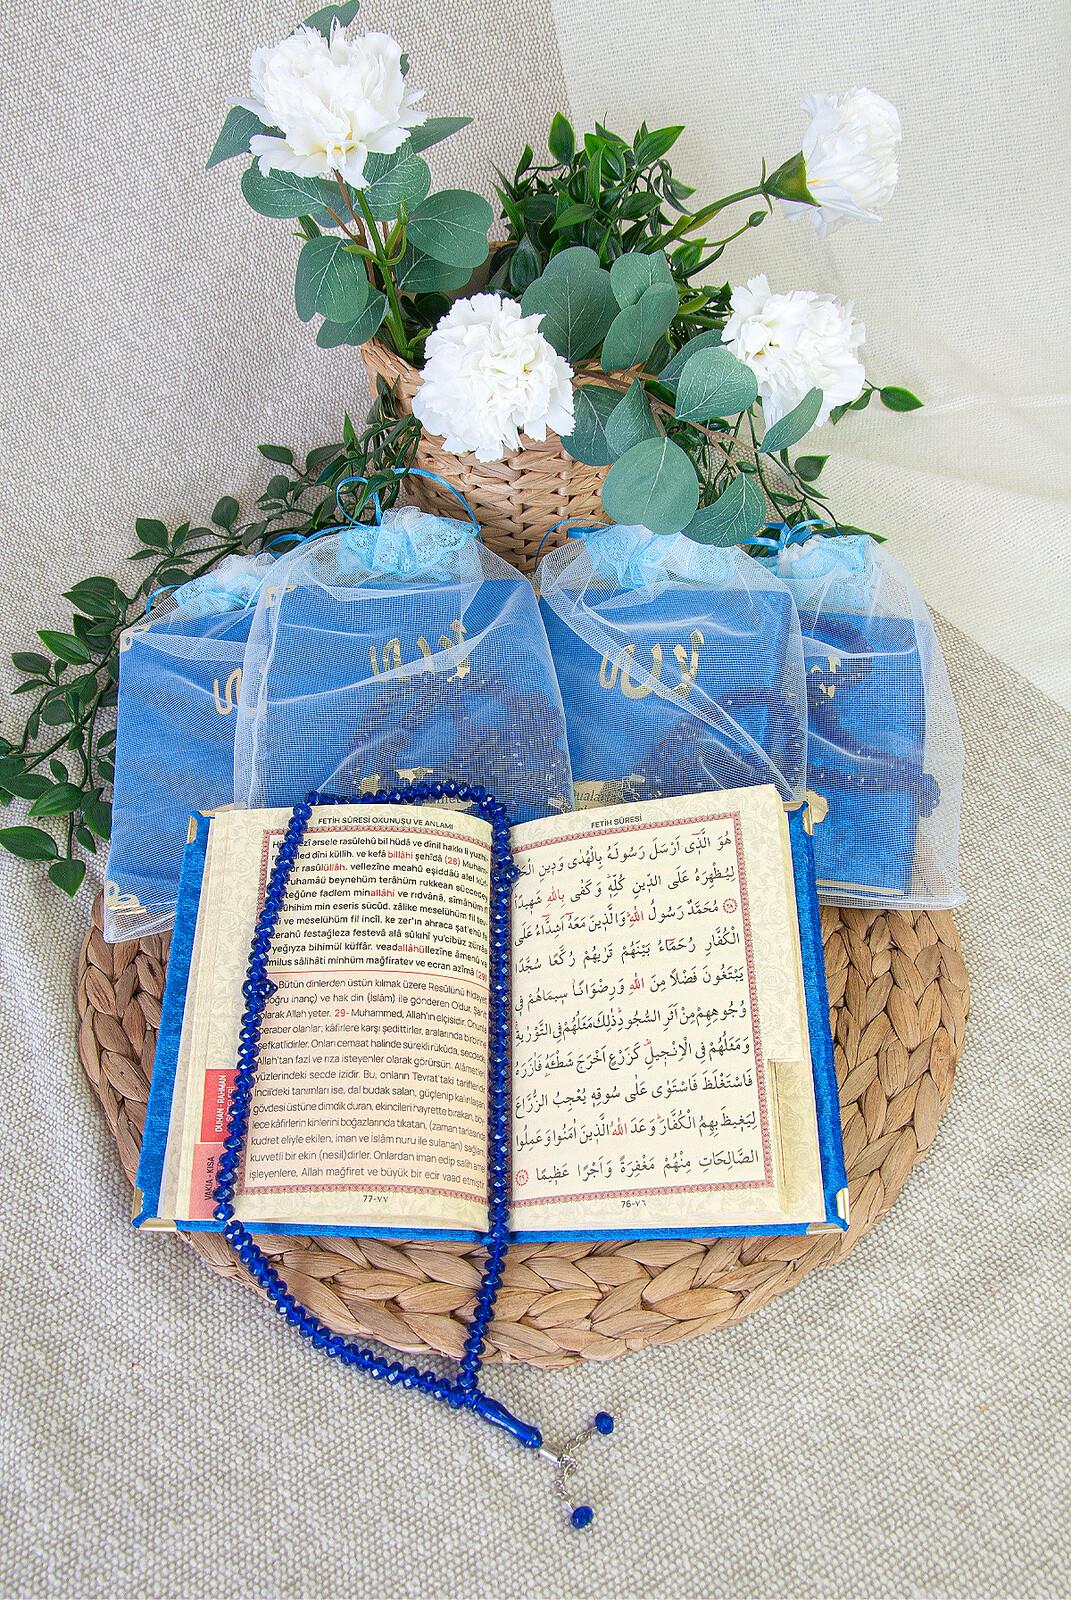 FETİH SÛRESİ OKUNUŞU VE ANLAMI
arsele rasûlehû bil hüdâ ve dînil hakkı
dîni küllih. ve kefâ billâhi şehîdâ (28)
rasûlüllâh. vellezîne meahû eşiddâü alel
beynehüm terâhüm rukkean
fadlem minallâhi ve rıdvânâ, sîmâhüm
min eseris sücûd. zâlike meselühüm
ve meselühüm fil incîl, ke zer'ın ahraca
festağleza festevâ alâ sûkıhî yu'cibüz
bihimül küffâr. veadallâhüllezîne
sâlihâti minhüm mağfiratev ve ecran azîmâ (29)
Bütün dinlerden üstün kılmak üzere Resûlünü
inanç) ve hak din (İslâm) ile gönderen O'dur.
olarak Allah yeter. 29- Muhammed, Allah'ın elçisidir.
beraber olanlar; kâfirlere karşı şedittirler, aralarında
Onları cemaat halinde sürekli rükûda,
fazl ve rıza isteyenler olarak görürsün.
yüzlerindeki secde izidir. Bu, onların Tevrat'taki
tanımları ise, dal budak salan, güçlenip
gövdesi üstüne dimdik duran, ekincileri hayrette bırakan,
kâfirlerin kinlerini boğazlarında tıkatan, (zaman
kudret eliyle ekilen, iman ve İslâm nuru ile sulanan)
kuvvetli bir ekin (nesil)dirler. Onlardan iman edip salih
işleyenlere, Allah mağfiret ve büyük bir ecir vaad
77-٧٧
DUHAN - RAHMAN
VAKIA - KISA
FETİH SÛRESİ
هُوَ الَّذ۪ٓي اَرْسَلَ رَسُولَهُ بِالْهُدٰى وَد۪ينِ
لِيُظْهِرَهُ عَلَى الدّ۪ينِ كُلِّه۪ۜ وَكَفٰى بِاللّٰهِ شَه۪يدًا
﴿٢٨﴾ مُحَمَّدٌ رَسُولُ اللّٰهِۜ وَالَّذ۪ينَ مَعَهُٓ اَشِدَّٓاءُ عَلَى
الْكُفَّارِ رُحَمَٓاءُ بَيْنَهُمْ تَرٰيهُمْ رُكَّعًا سُجَّدًا
يَبْتَغُونَ فَضْلًا مِنَ اللّٰهِ وَرِضْوَانًاۘ س۪يمَاهُمْ ف۪ي
وُجُوهِهِمْ مِنْ اَثَرِ السُّجُودِۜ ذٰلِكَ مَثَلُهُمْ فِي التَّوْرٰيةِۚ
وَمَثَلُهُمْ فِي الْاِنْج۪يلِ۠ كَزَرْعٍ اَخْرَجَ شَطْـَٔهُ فَاٰزَرَهُ
فَاسْتَغْلَظَ فَاسْتَوٰى عَلٰى سُوقِه۪ يُعْجِبُ الزُّرَّاعَ
لِيَغ۪يظَ بِهِمُ الْكُفَّارَۜ وَعَدَ اللّٰهُ الَّذ۪ينَ اٰمَنُوا وَعَمِلُوا
الصَّالِحَاتِ مِنْهُمْ مَغْفِرَةً وَاَجْرًا عَظ۪يمًا ﴿٢٩﴾
76-٧٦